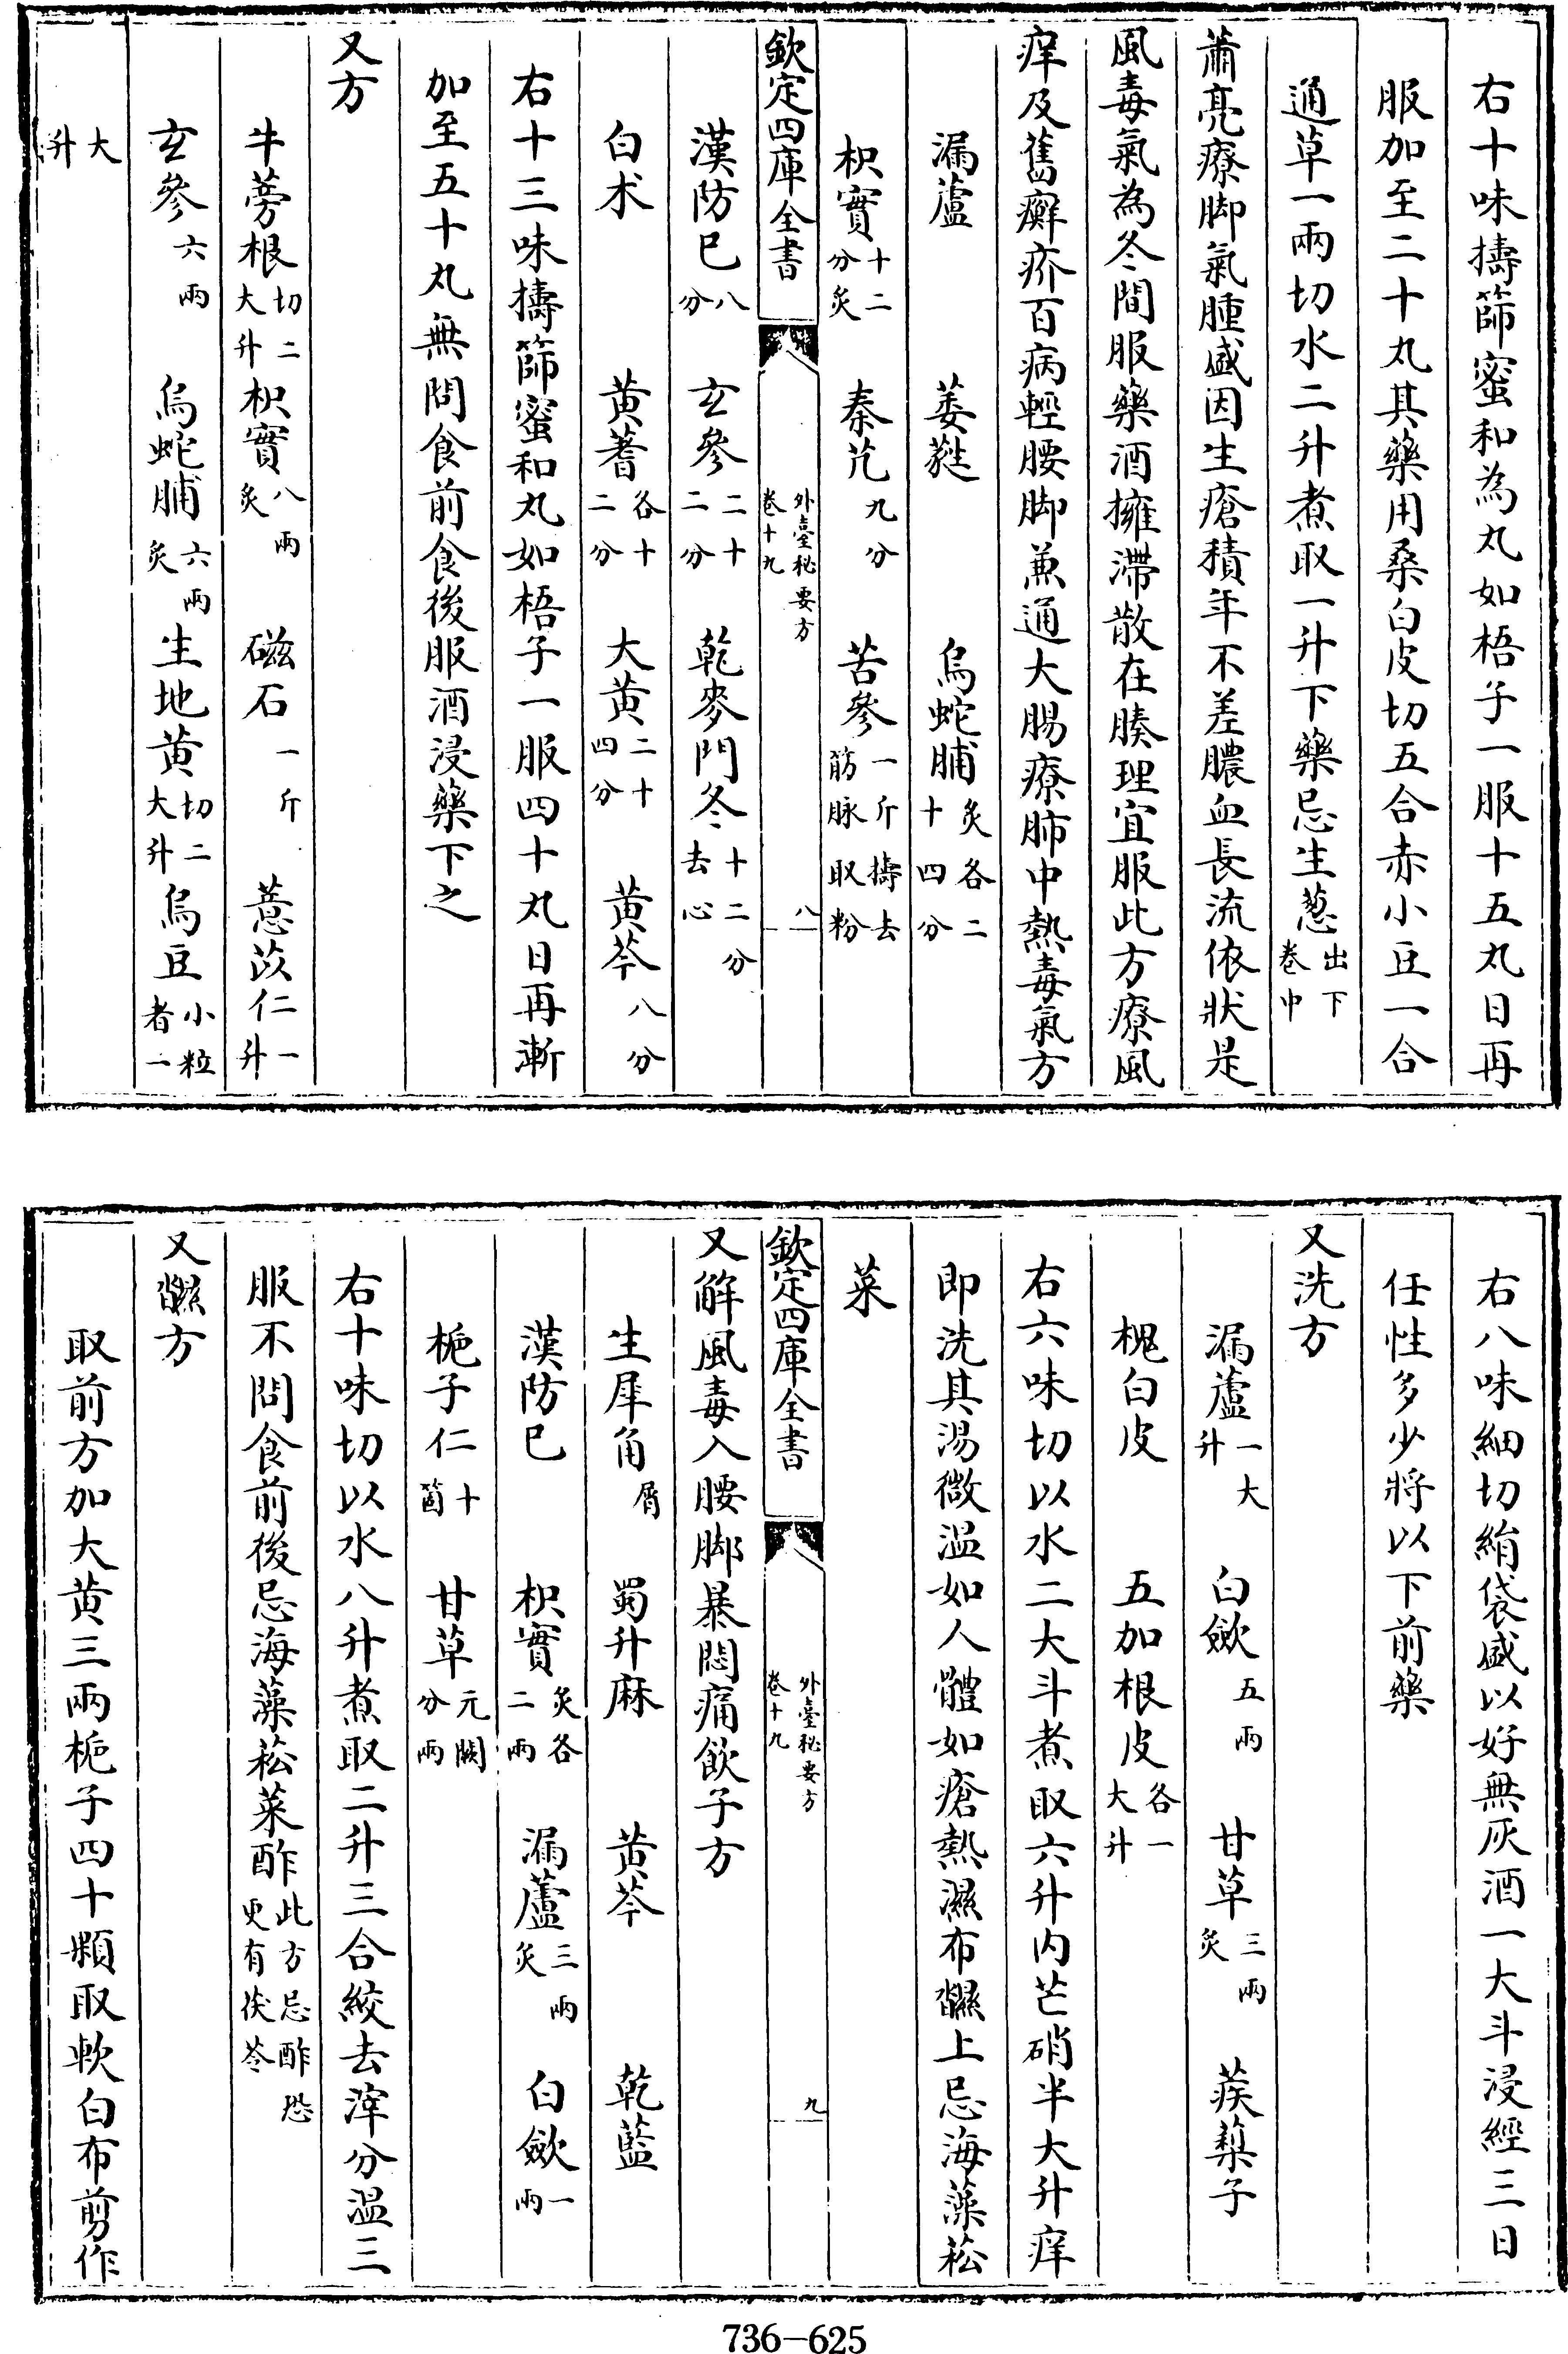 右十味擣篩蜜和為丸如梧子一服十五丸日再
服加至二十丸其藥用桑白皮切五合赤小豆一合
通草一兩切水二升煮取一升下藥忌生葱出下卷中
蕭亮療脚氣腫盛因生瘡積年不差膿血長流依狀是
風毒氣為冬間服藥酒擁滯散在腠理宜服此方療風
痒及舊癬疥百病輕腰脚兼通大腸療肺中熱毒氣方
漏蘆 萎蕤 烏蛇脯炙各二十四分
枳實十二分炙 秦艽九分 苦參一斤擣去筋脉取粉
欽定四庫全書 外臺秘要方卷十九 八
漢防已八分 玄參二十二分 乾麥門冬十二分去心
白术 黄蓍各十二分 大黄二十四分 黄芩八分
右十三味擣篩蜜和丸如梧子一服四十丸日再漸
加至五十丸無問食前食後服酒浸藥下之
又方
牛蒡根切二大升 枳實八兩炙 磁石一斤 薏苡仁一升
玄參六兩 烏蛇脯六兩炙 生地黄切二大升 烏豆小粒者一
大升
右八味細切絹袋盛以好無灰酒一大斗浸經三日
任性多少將以下前藥
又洗方
漏蘆一大升 白斂五兩 甘草三兩炙 蒺藜子
槐白皮 五加根皮各一大升
右六味切以水二大斗煮取六升内芒硝半大升痒
即洗其湯微温如人體如瘡熱濕布㩙上忌海藻菘
菜
欽定四庫全書 外臺秘要方卷十九 九
又解風毒入腰脚暴悶痛飲子方
生犀角屑 蜀升麻 黄芩 乾藍
漢防已 枳實炙各二兩 漏蘆三兩炙 白斂一兩
梔子仁十箇 甘草元闕分兩
右十味切以水八升煮取二升三合絞去滓分温三
服不問食前後忌海藻菘菜酢此方忌酢恐更有茯苓
又㩙方
取前方加大黄三兩梔子四十顆取軟白布剪作
736-625